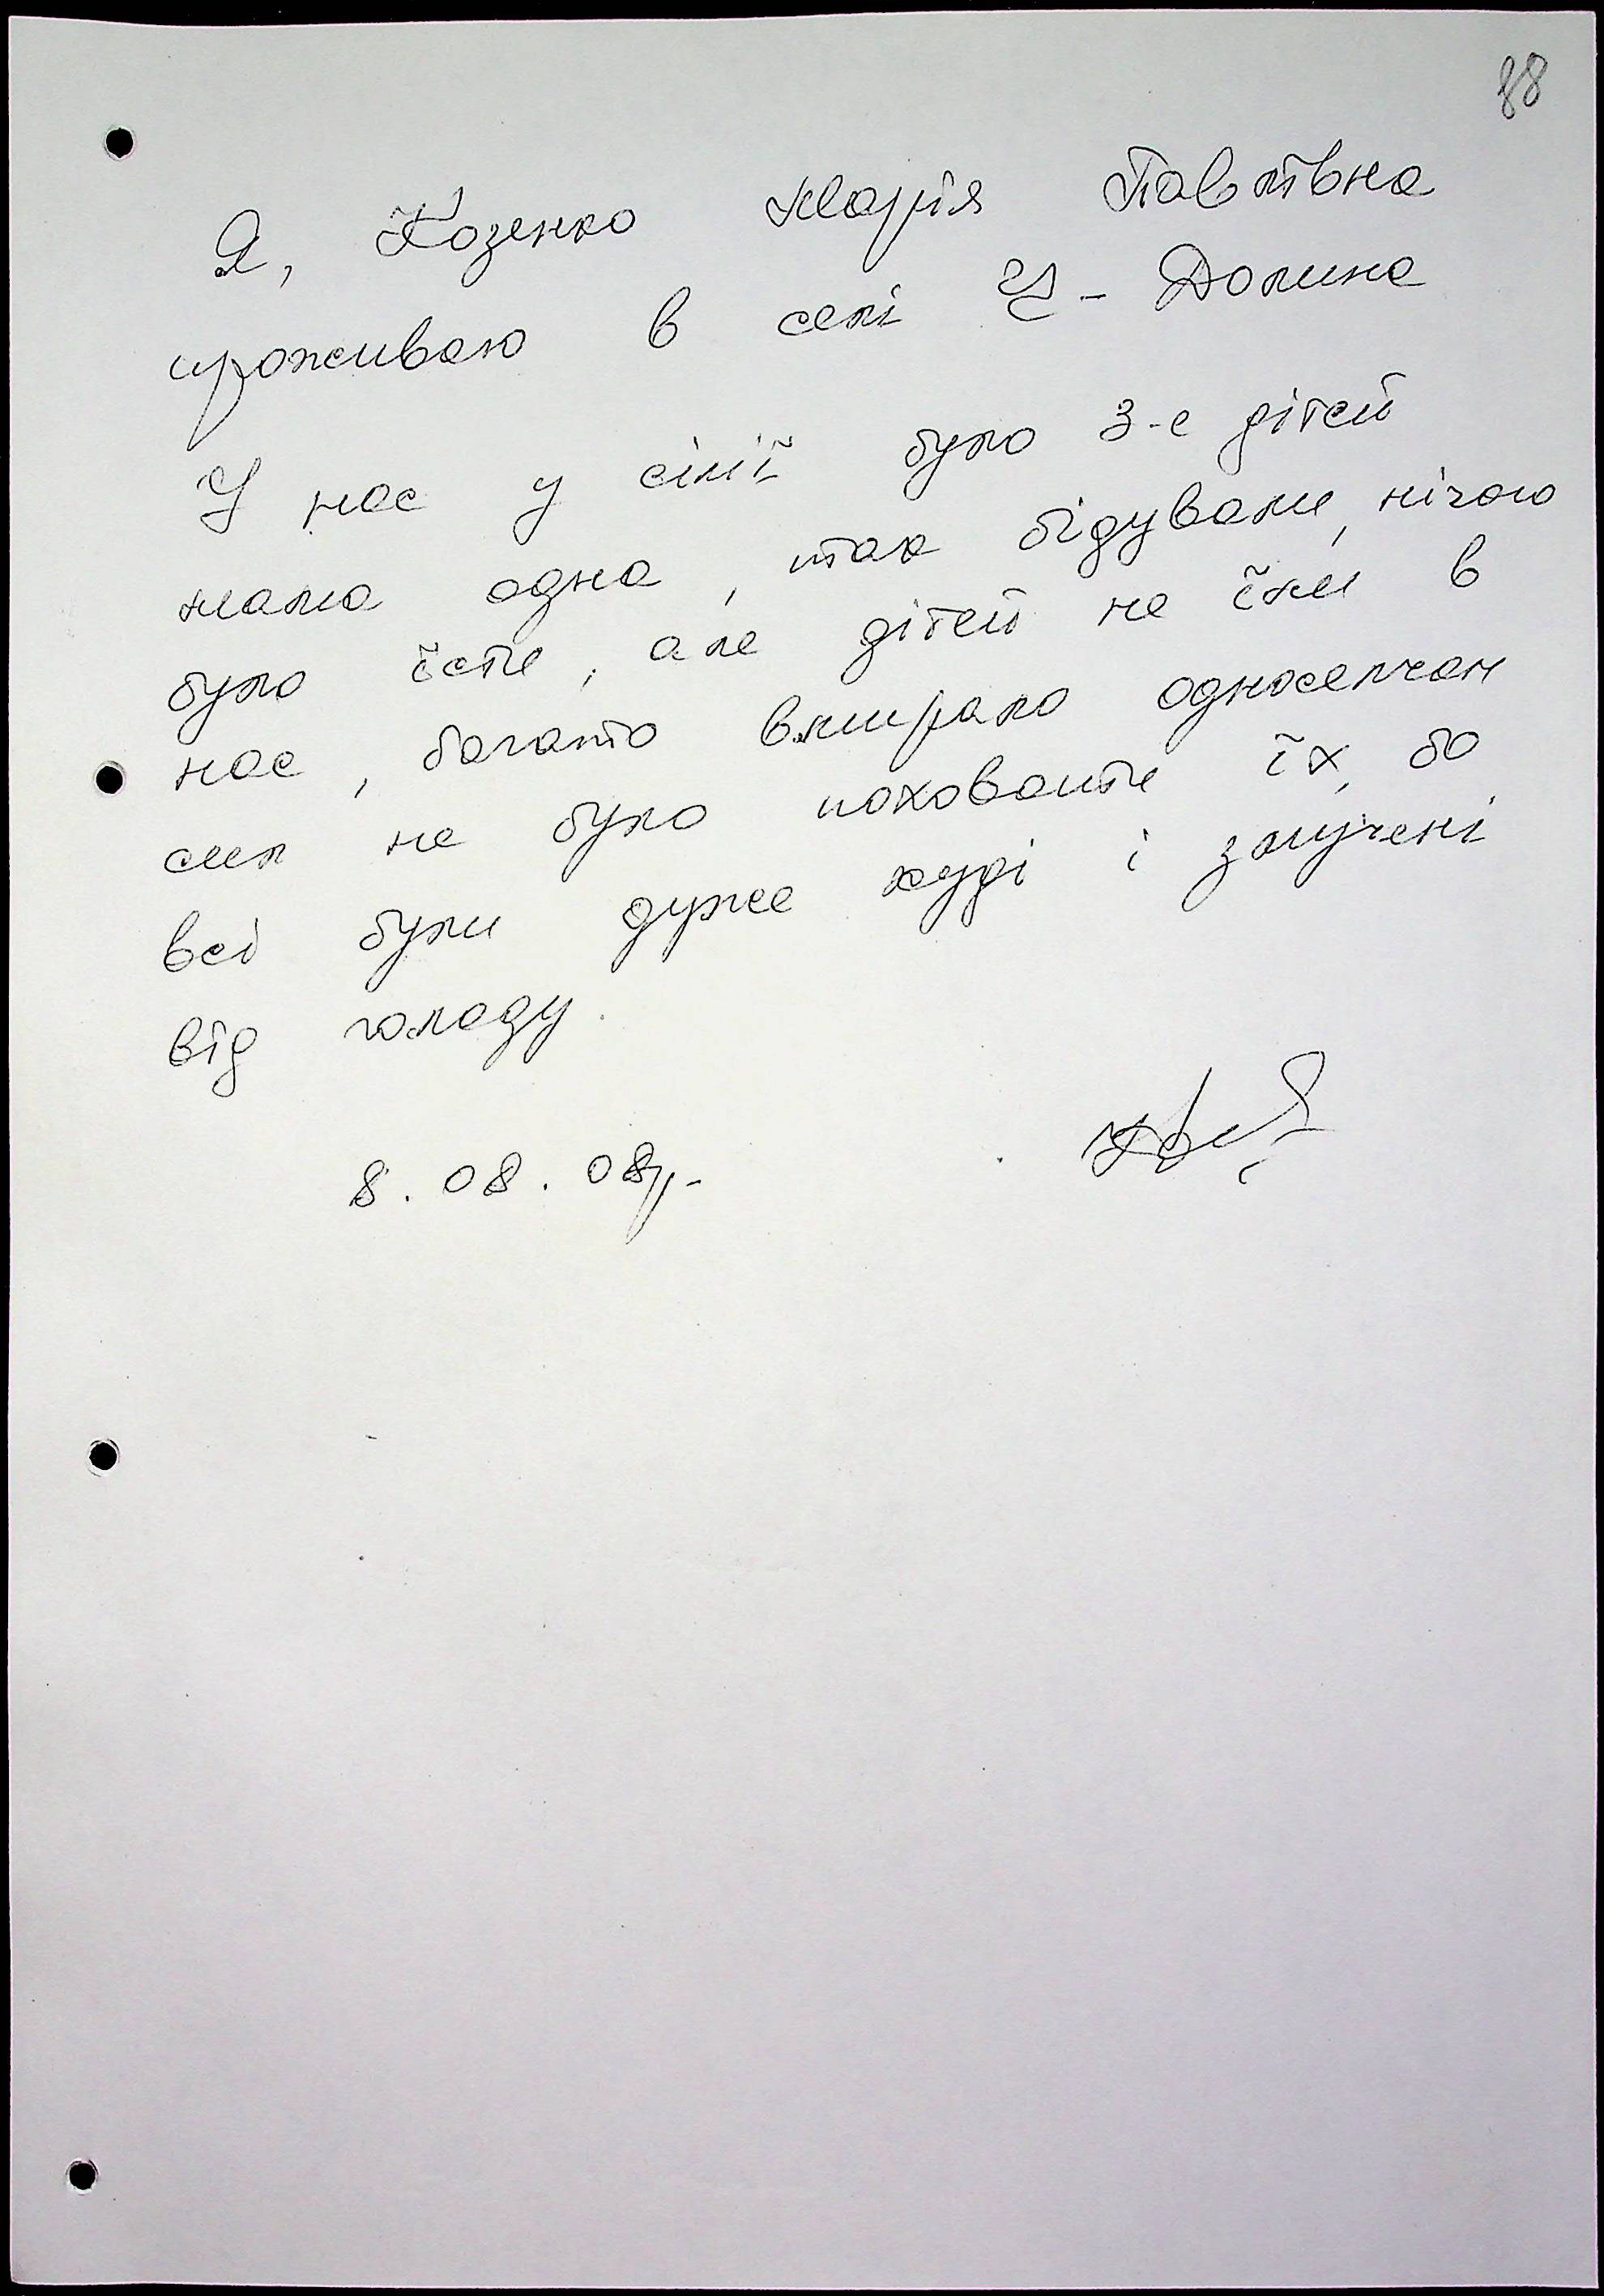 88
Я, Козенко Марія Павлівна
проживаю в селі Ч-Долина
У нас у сімії було 3-є дітей
мама одна, так бідували, нічого
було їсти, але дітей не їли в
нас, багато вмирало односельчан
сил не було поховати їх, бо
всі були дуже худі і змучені
від голоду.
8.08.08р.